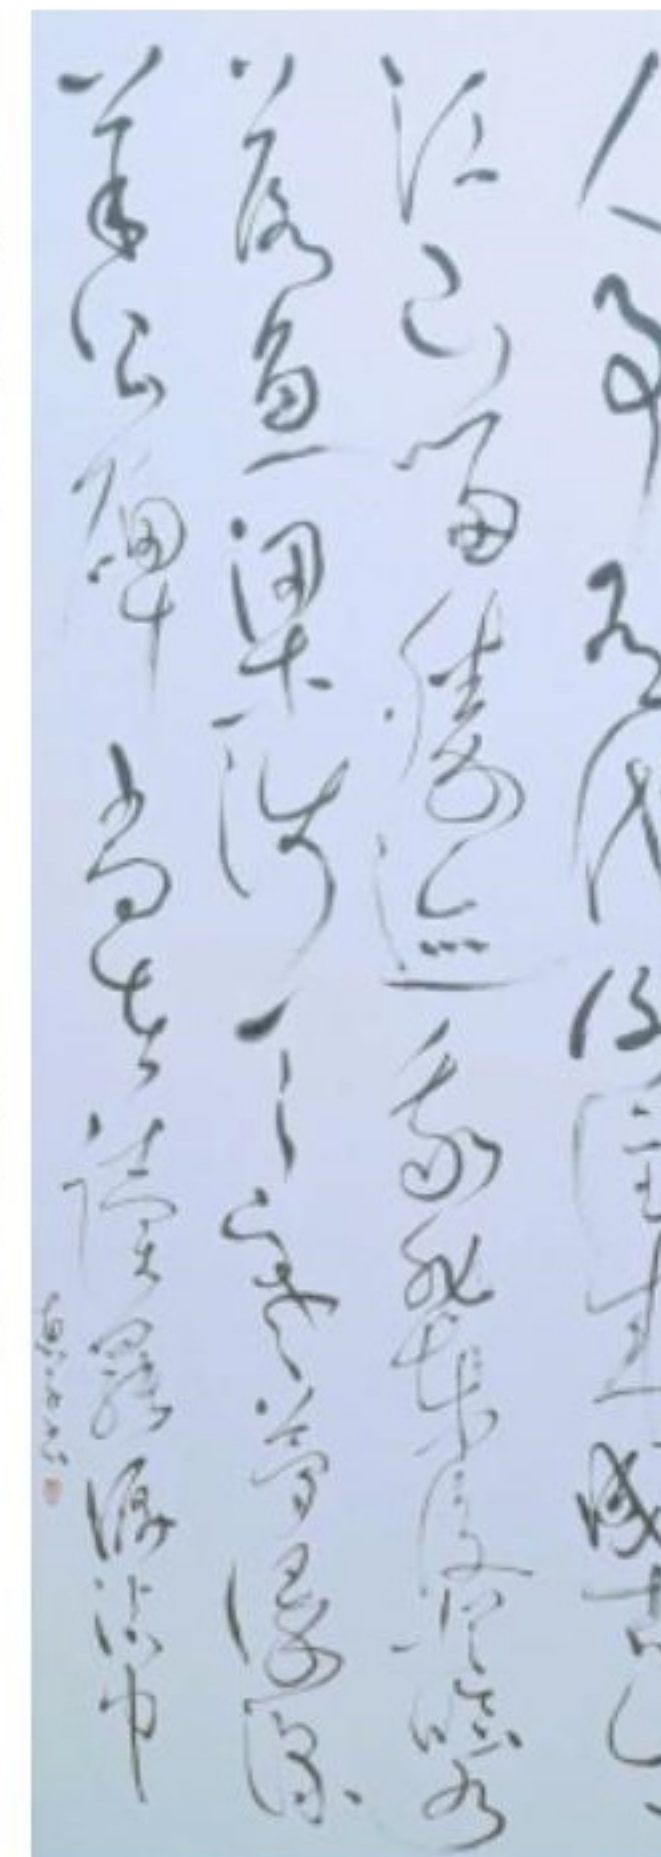 人事有代謝往來成古今
江山留勝迹我輩復登臨水
落魚梁淺天寒夢澤深
羊公碑尚在讀罷淚沾巾